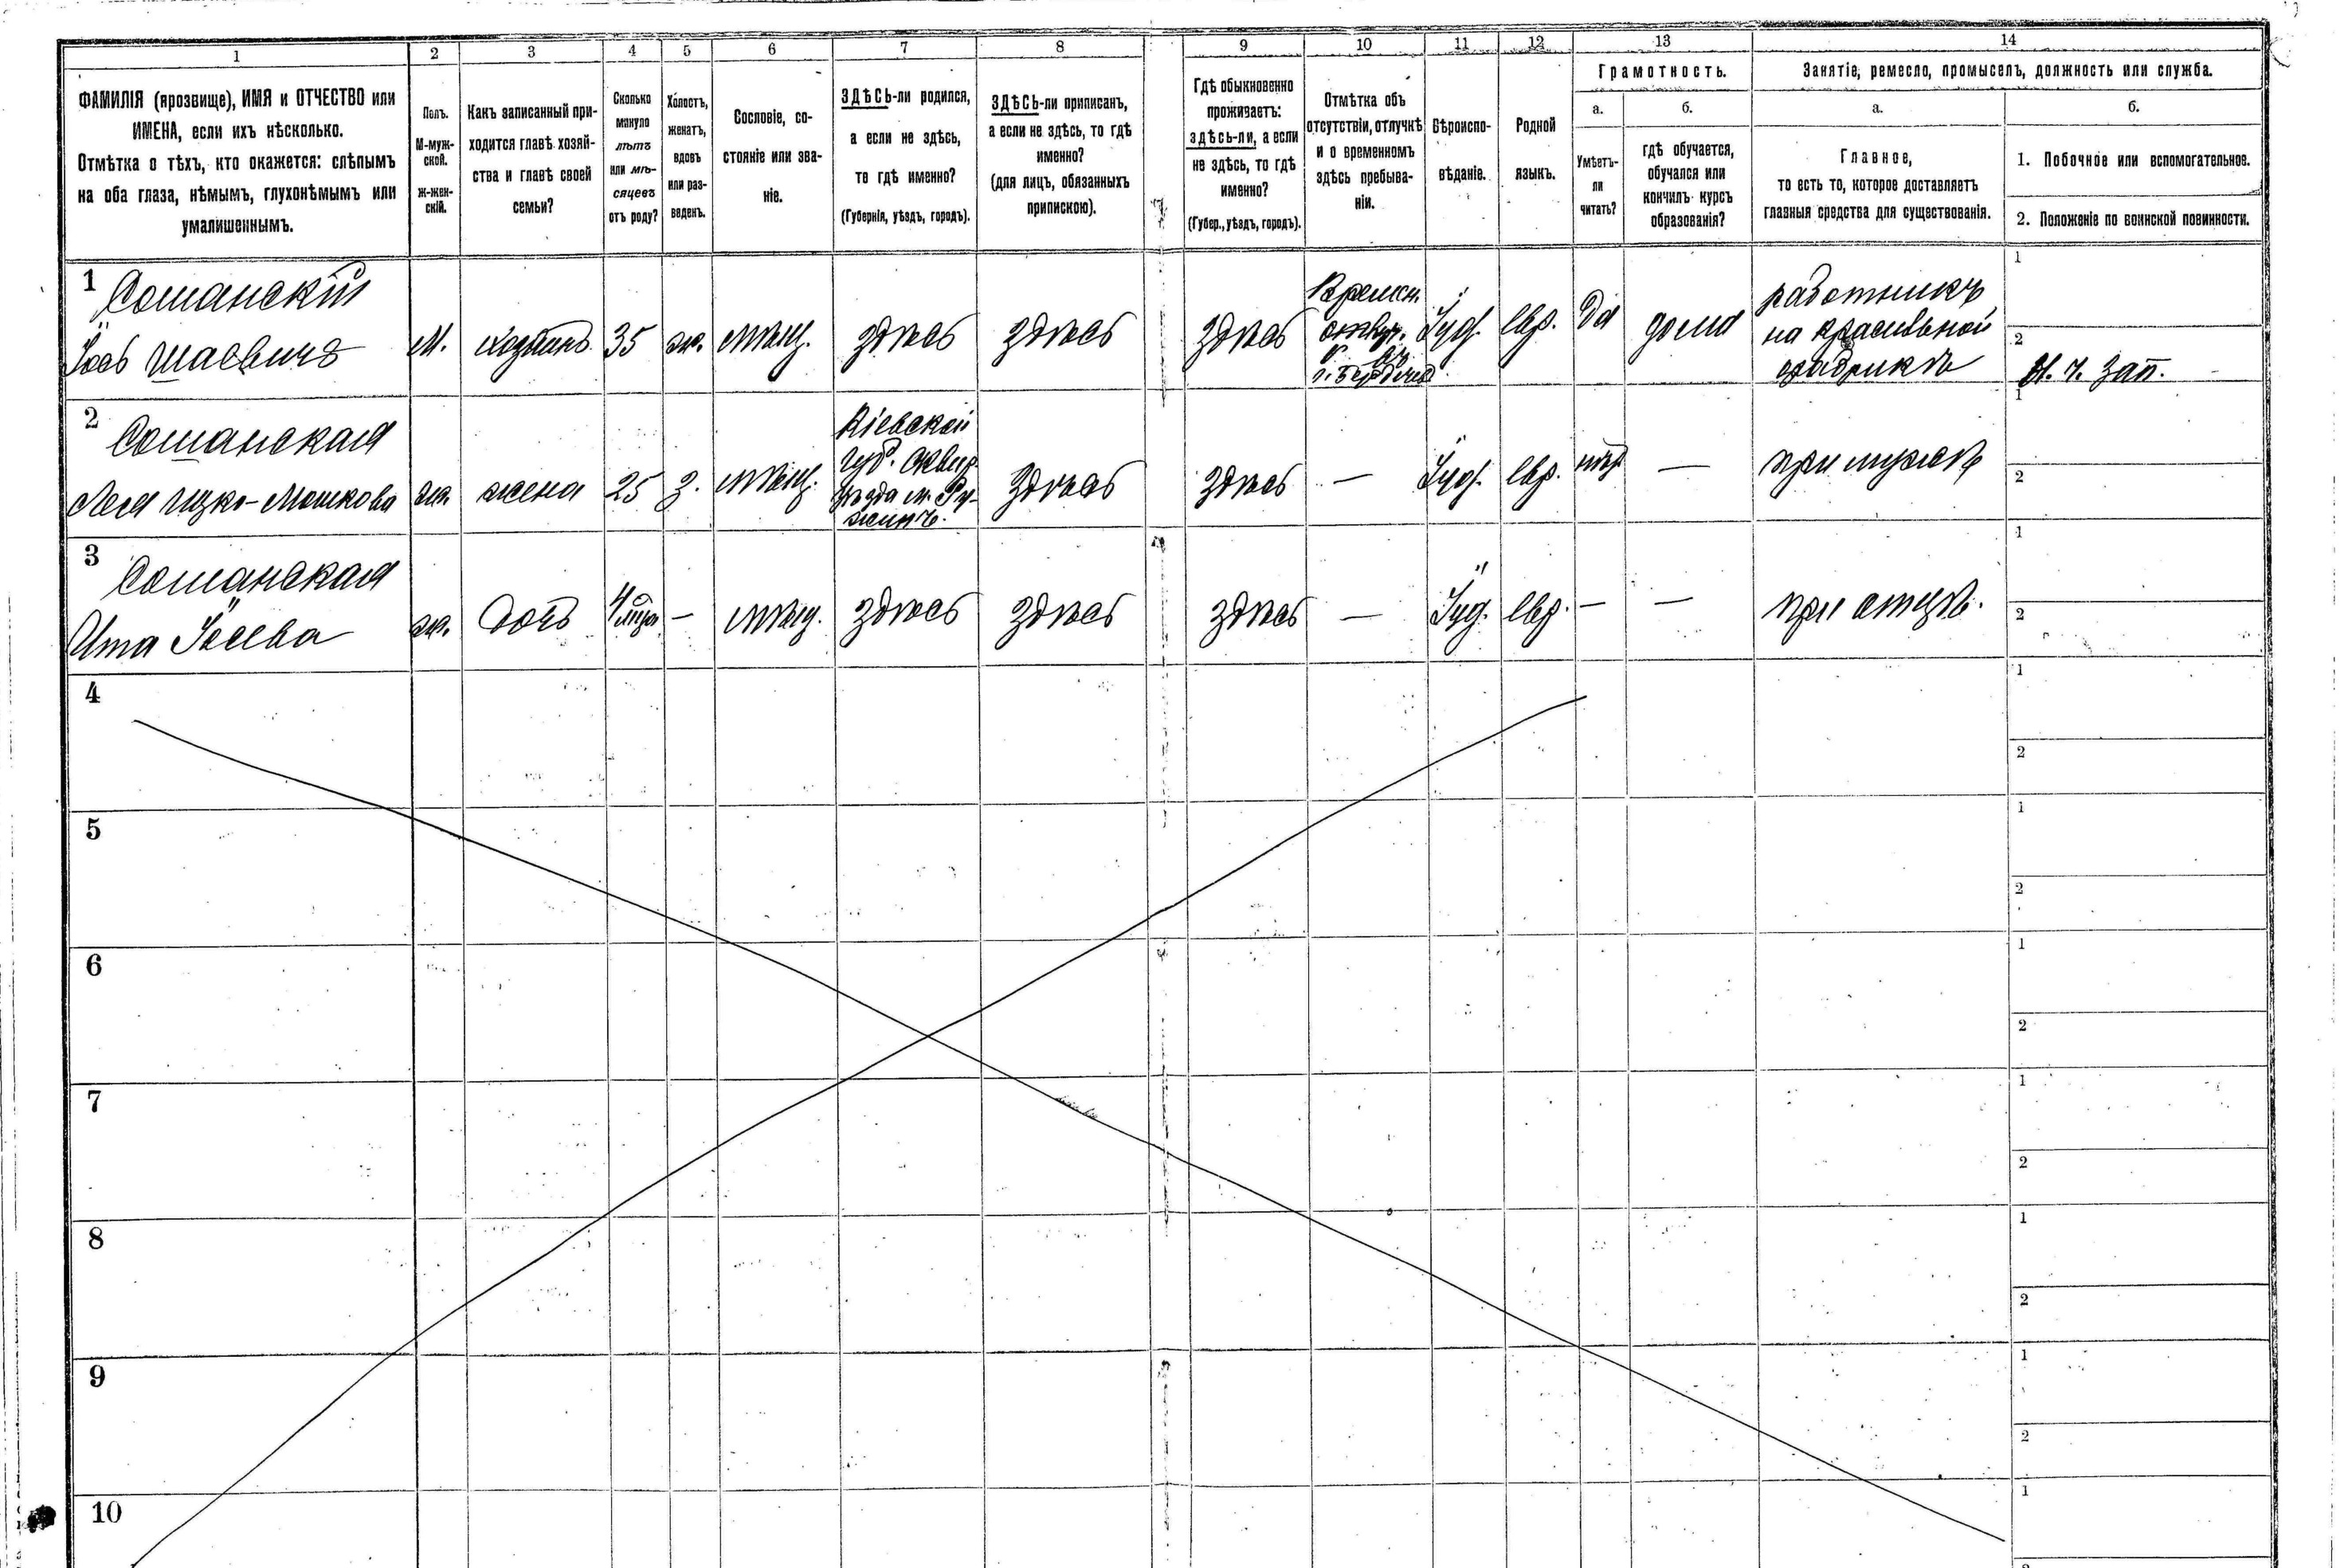 1 2 3 4 5 6 7 8 9 10 11 12 13 14
ФАМИЛІЯ (прозвище), ИМЯ и ОТЧЕСТВО или
ИМЕНА, если ихъ нѣсколько.
Отмѣтка о тѣхъ, кто окажется: слѣпымъ
на оба глаза, нѣмымъ, глухонѣмымъ или
умалишеннымъ.
Полъ.
М-муж-
ской.
ж-жен-
скій.
Какъ записанный при-
ходится главѣ хозяй-
ства и главѣ своей
семьи?
Сколько
минуло
лѣтъ
или мѣ-
сяцевъ
отъ роду?
Холостъ,
женатъ,
вдовъ
или раз-
веденъ.
Сословіе, со-
стояніе или зва-
ніе.
ЗДѢСЬ-ли родился,
а если не здѣсь,
то гдѣ именно?
(Губернія, уѣздъ, городъ).
ЗДѢСЬ-ли приписанъ,
а если не здѣсь, то гдѣ
именно?
(для лицъ, обязанныхъ
припискою).
Гдѣ обыкновенно
проживаетъ:
здѣсь-ли, а если
не здѣсь, то гдѣ
именно?
(Губер., уѣздъ, городъ).
Отмѣтка объ
отсутствіи, отлучкѣ
и о временномъ
здѣсь пребыва-
ніи.
Вѣроиспо-
вѣданіе.
Родной
языкъ.
Грамотность.
а.
Умѣетъ-
ли
читать?
б.
гдѣ обучается,
обучался или
кончилъ курсъ
образованія?
Занятіе, ремесло, промыселъ, должность или служба.
а.
Главное,
то есть то, которое доставляетъ
главныя средства для существованія.
б.
1. Побочное или вспомогательное.
2. Положеніе по воинской повинности.
1
Сошанскій
Іось Шаевичъ
М.
хозяинъ
35
ж.
мѣщ.
здѣсь
здѣсь
здѣсь
Времен.
отлуч.
въ
г. Бердичев
Іуд.
евр.
да
дома
работникъ
на красильной
фабрикѣ
1
2
Н. ч. зап.
2
Сошанская
Лея Ицко-Мошкова
ж.
жена
25
з.
мѣщ.
Кіевской
губ. Сквир.
уѣзда м. Ру-
жинъ.
здѣсь
здѣсь
—
Іуд.
евр.
нѣт
—
при мужѣ
1
2
3
Сошанская
Ита Іосева
ж.
дочь
4 мѣся
—
мѣщ.
здѣсь
здѣсь
здѣсь
—
Іуд.
евр.
—
—
при отцѣ.
1
2
4
1
2
5
1
2
6
1
2
7
1
2
8
1
2
9
1
2
10
1